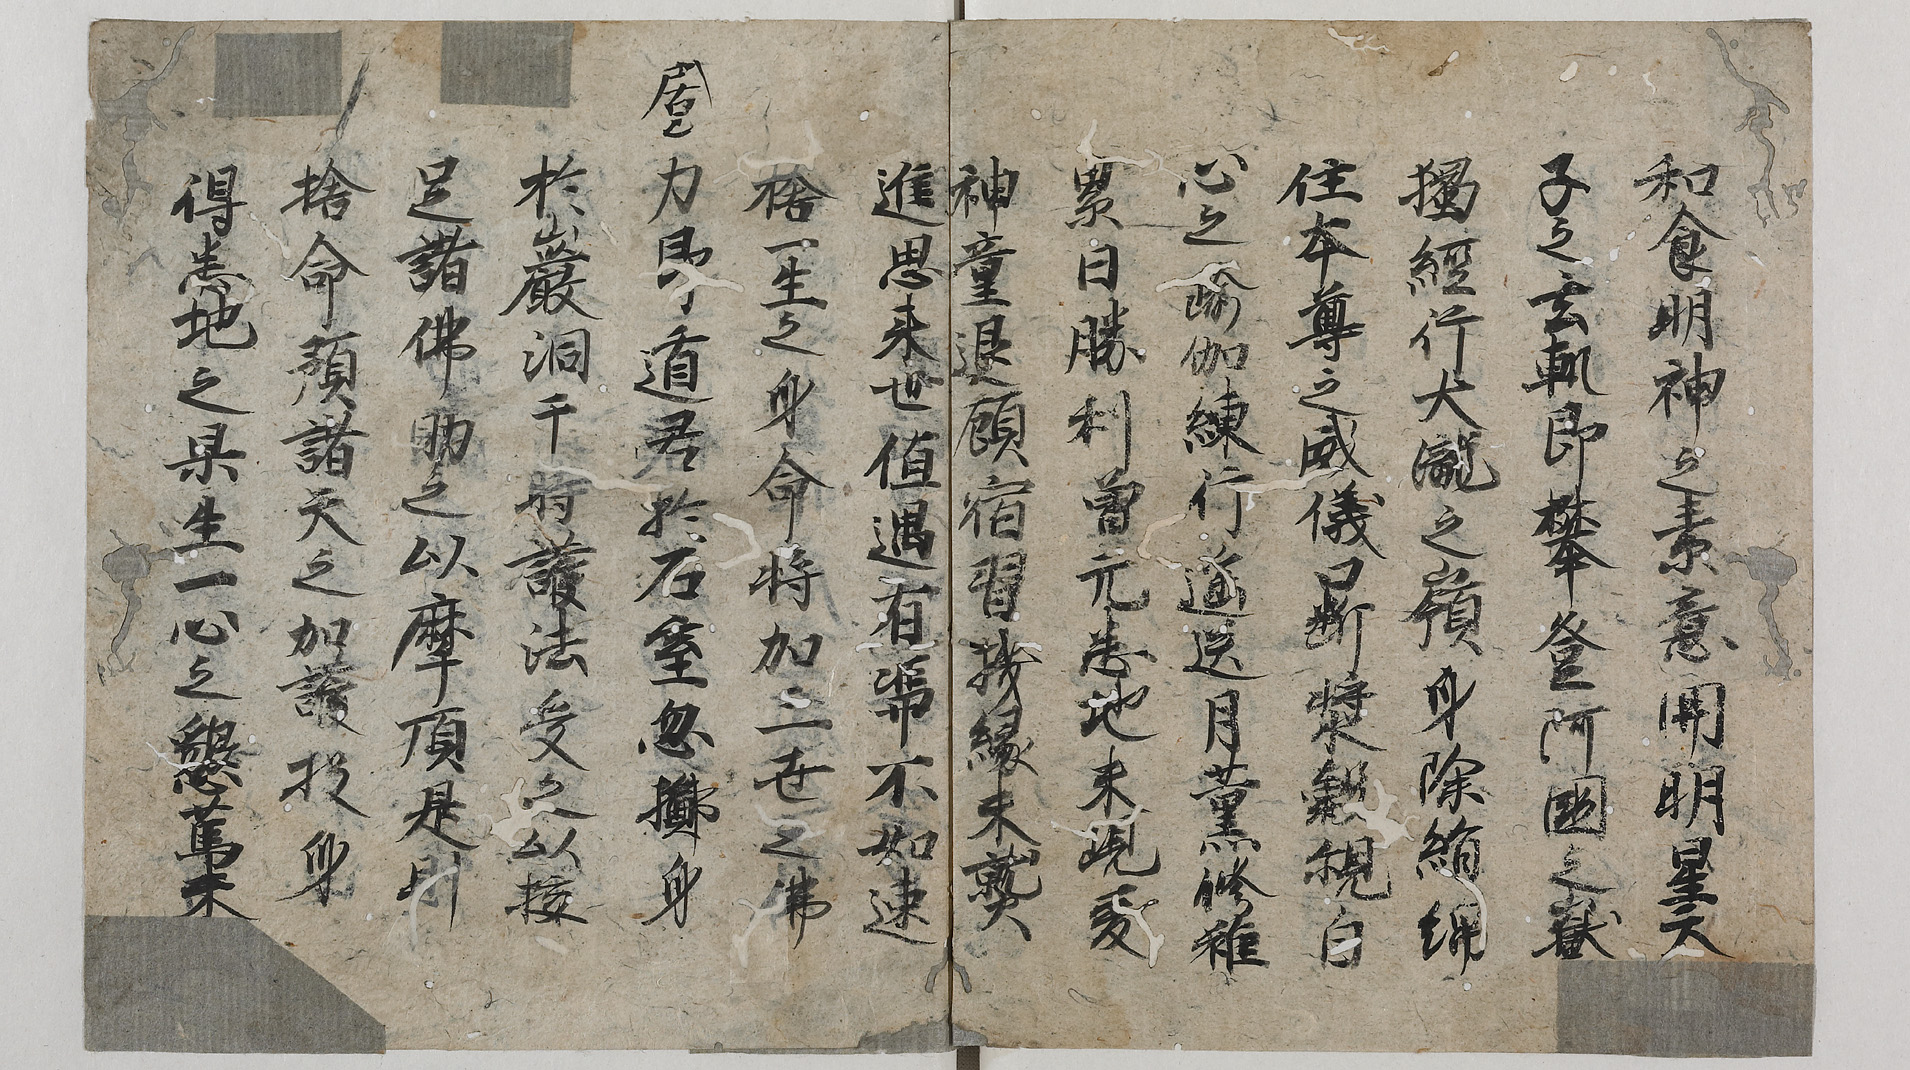 和食明神之素意開明星天
子之玄軌即攀登阿國之嶽
獨經行犬瀧之嶺身除絹綿
住本尊之威儀口断漿穀視白
心之瑜伽練行過送月薫修稚
累日勝利曽元悉地未現爰
神童退顧宿習機縁未熟
進思来世值遇有㡭不如速
捨一生之身命将加三世之佛
力即道君於石室忽擲身
於山巌洞干時護法受之以接
足諸佛助之以摩頂是則
捨命預諸天之加護投身
得悉地之果生一心之懇篤未